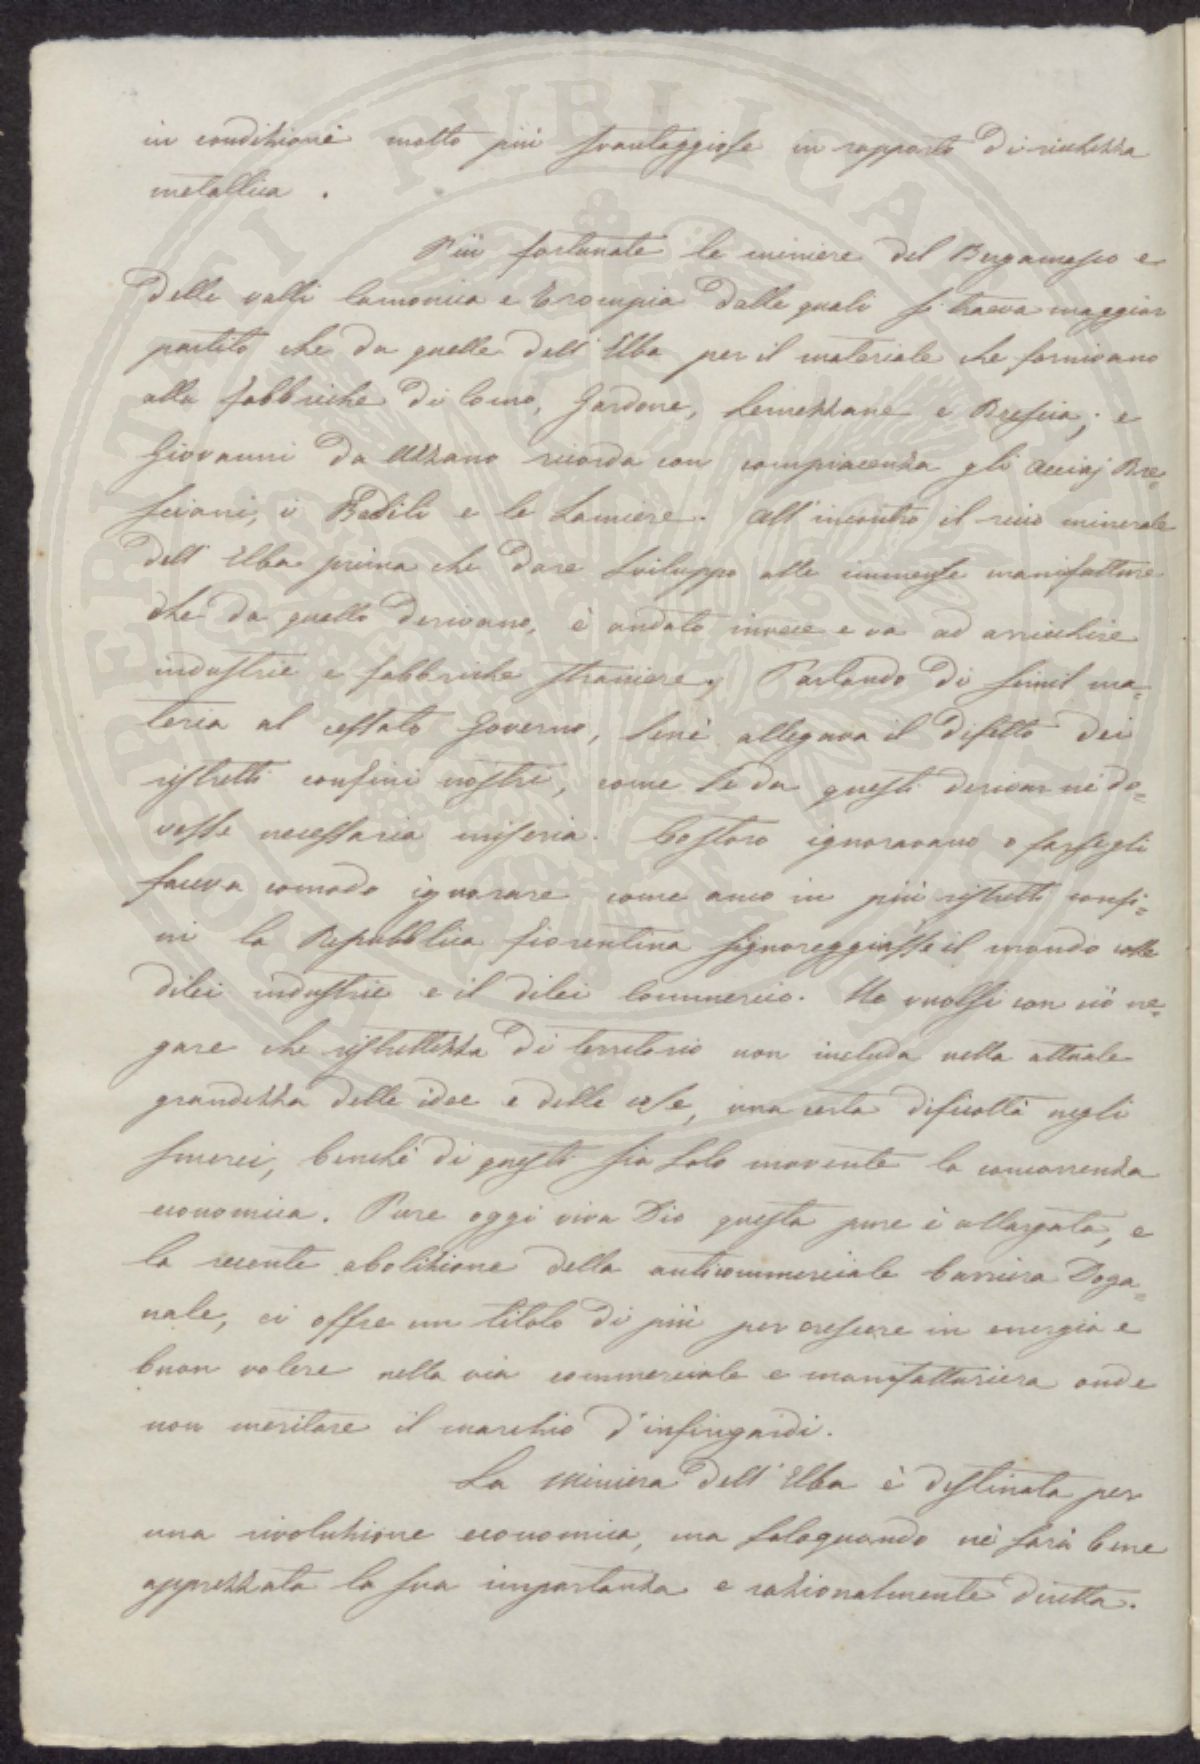 in condizioni molto più svantaggiose in rapporto di ricchezza
metallica.
Più fortunate le miniere del Bergamasco e
delle valli Camonica e Trompia dalle quali si traeva maggior
partito che da quelle dell'Elba per il materiale che fornivano
alle fabbriche di Como, Gardone, Lumezzane e Brescia; e
Giovanni da Uzzano ricorda con compiacenza gli acciaj Bre=
sciani, i Badili e le Lamiere. All'incontro il ricco minerale
dell'Elba prima che dare sviluppo alle immense manifatture
che da quello derivano, è andato invece e va ad arricchire
industrie e fabbriche straniere. Parlando di simil ma=
teria al cessato Governo, sene allegava il difetto dei
ristretti confini nostri, come se da questi derivar ne do=
vesse necessaria miseria. Costoro ignoravano o forse gli
faceva comodo ignorare come anco in più ristretti confi=
ni la Repubblica fiorentina signoreggiasse il mondo colle
dilei industrie e il dilei Commercio. Ne vuolsi con ciò ne=
gare che ristrettezza di territorio non includa nella attuale
grandezza delle idee e delle cose, una certa dificoltà negli
smerci, benchè di questi sia solo movente la concorrenza
economica. Pure oggi viva Dio questa pure è allargata, e
la recente abolizione della anticommerciale barriera Doga=
nale, ci offre un titolo di più per crescere in energia e
buon volere nella via commerciale e manifatturiera onde
non meritare il marchio d'infingardi.
La Miniera dell'Elba è destinata per
una rivoluzione economica, ma soloquando ne sarà bene
apprezzata la sua importanza e razionalmente diretta.